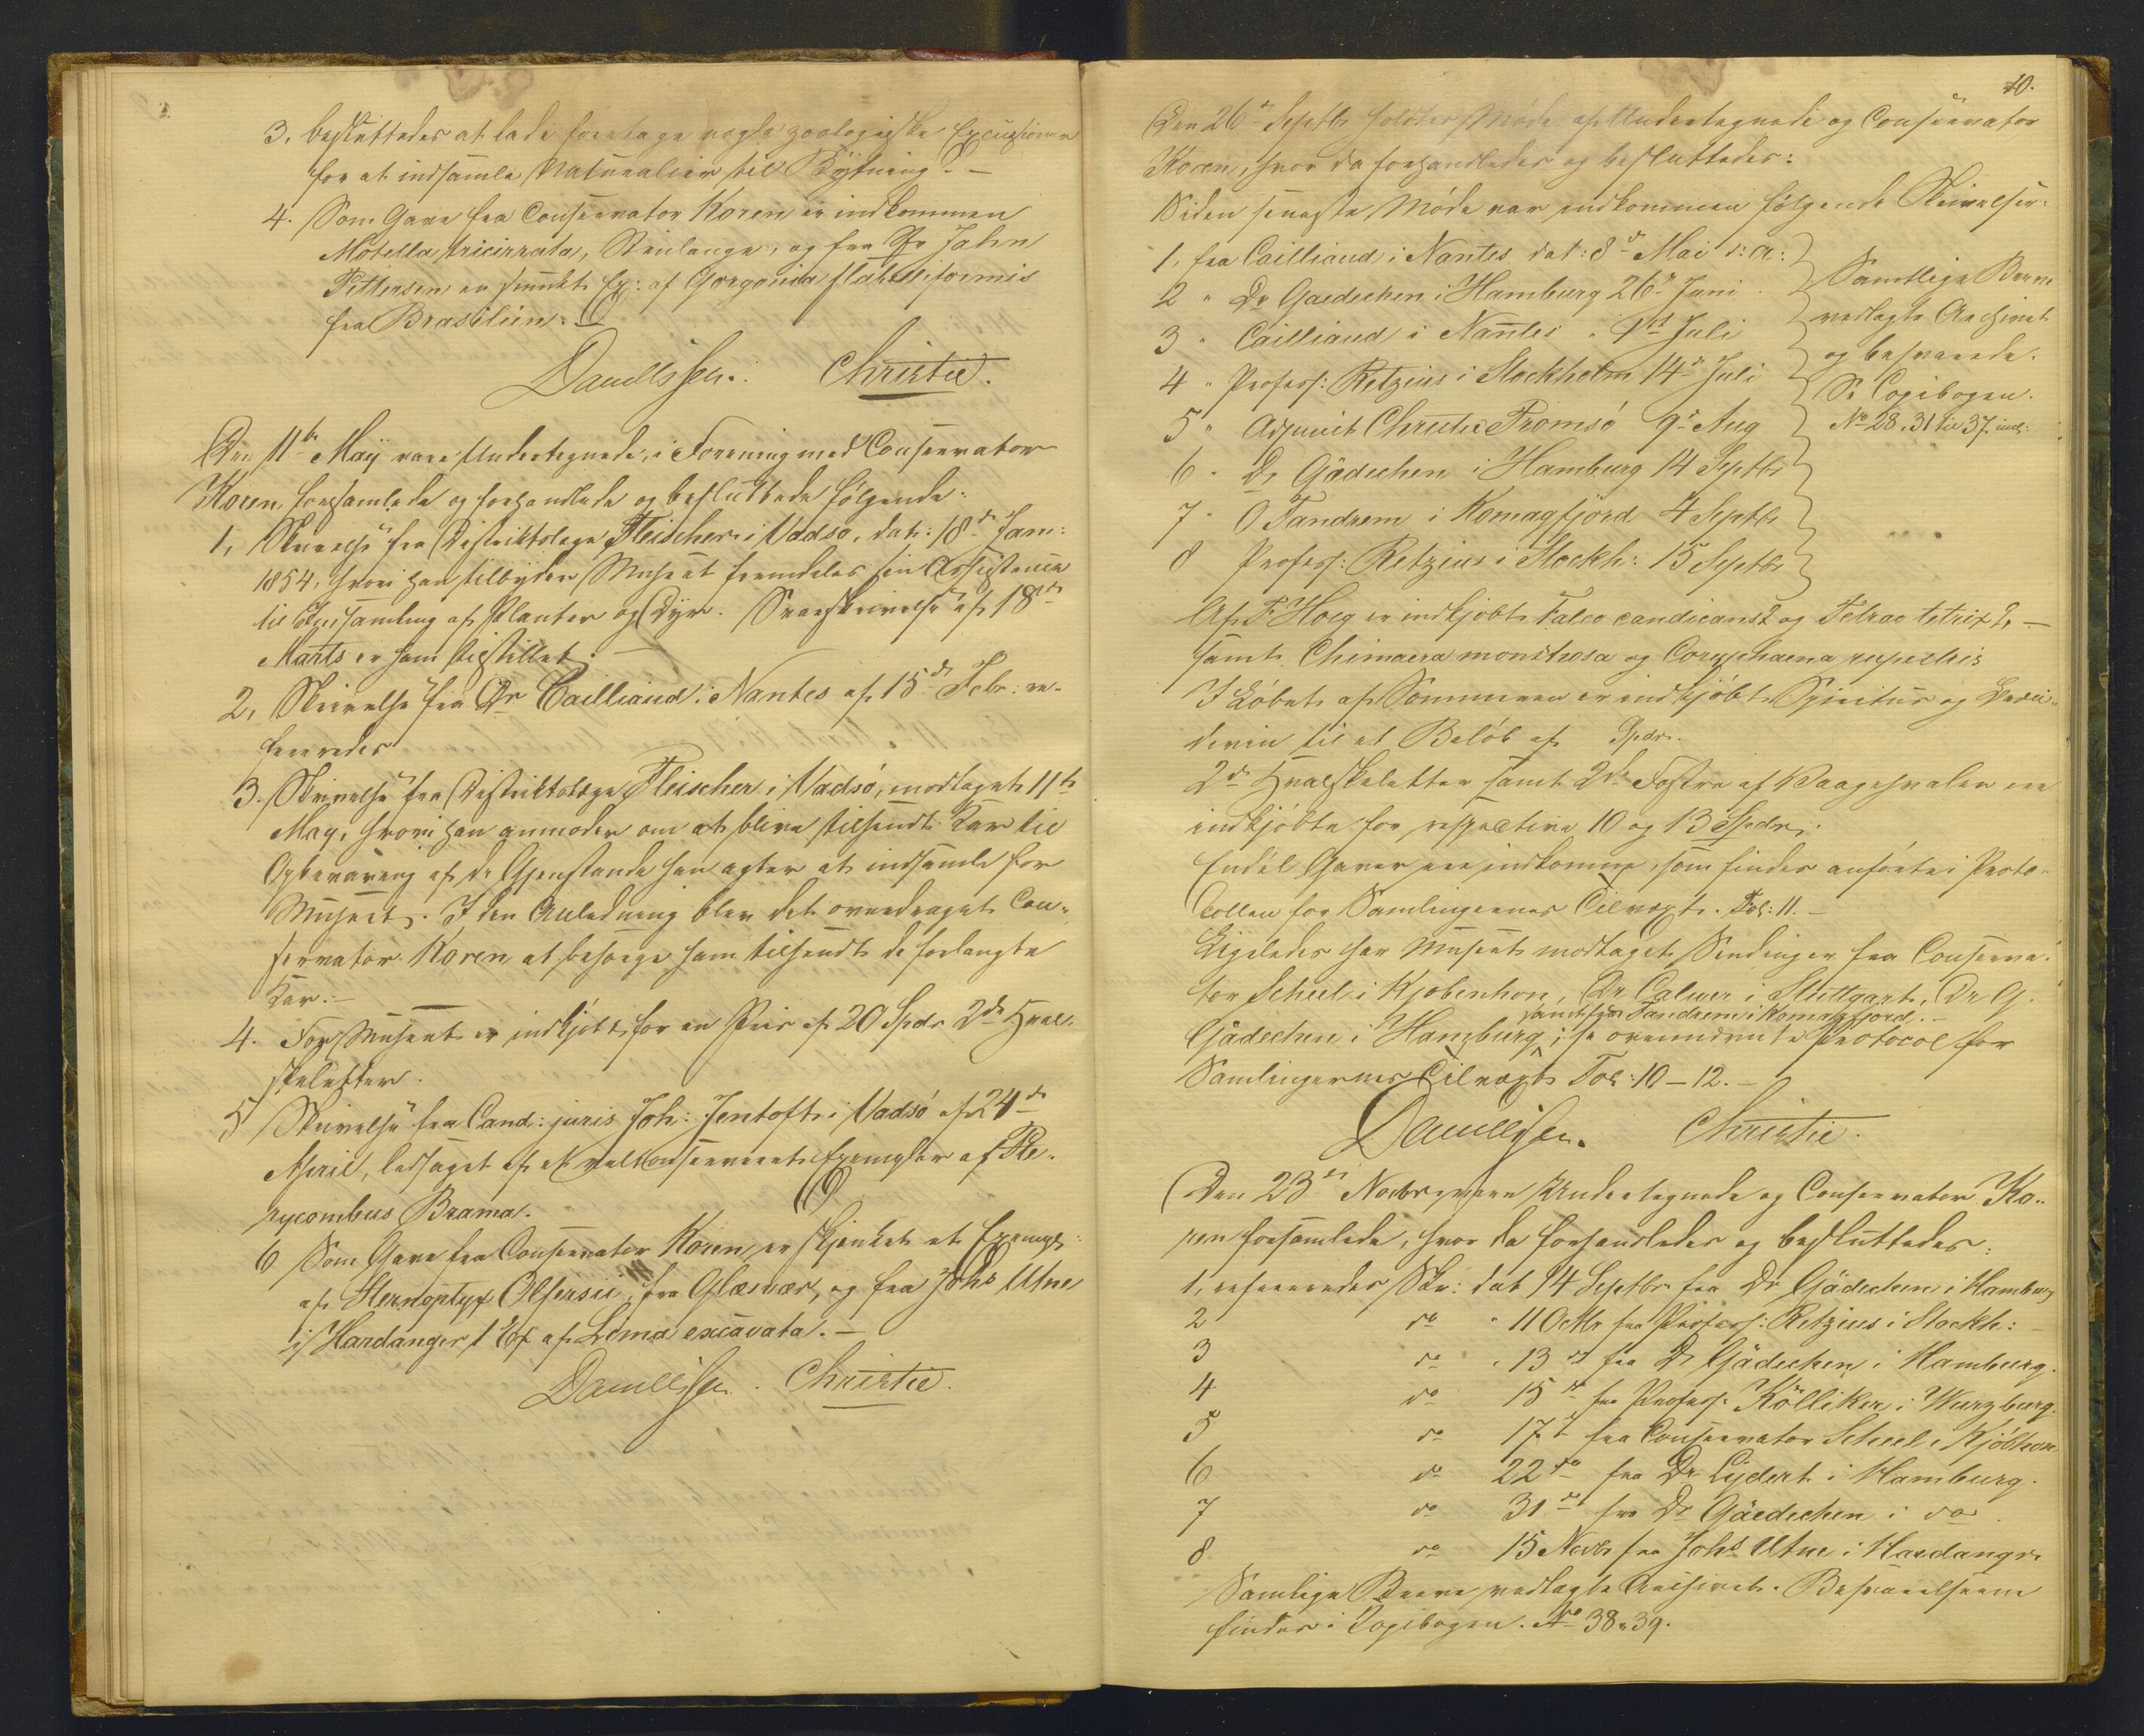 3, besluttedes at lade foretage nogle zoologiske Excursioner
for at indsamle Naturalier til Bytning. —
4. Som Gave fra Conservator Koren er indkommen
Motella tricirrata, Steinlange, og fra Hr Jahn
Pettersen et smukt Ex: af Gorgonia flabelliformis
fra Brasilien.
Danielssen. Christie.
Den 11te May vare Undertegnede, i Forening med Conservator
Koren forsamlede og forhandlede og besluttede følgende:
1, Skrivelse fra Distriktslæge Fleischer i Vadsø, dat: 18de Jan:
1854, hvori han tilbyder Museet fremdeles sin Assistence
til Indsamling af Planter og Dyr. Svarskrivelse af 18de
Marts er ham tilstillet. —
2, Skrivelse fra Dr Cailliaud i Nantes af 15de Febr: re-
fereredes
3. Skrivelse fra Distriktslæge Fleischer i Vadsø, modtaget 11te
May, hvori han anmoder om at blive tilsendt Kar til
Opbevaring af de Gjenstande han agter at indsamle for
Museet. I den Anledning blev det overdraget Con-
servator Koren at besørge ham tilsendt de forlangte
Kar. —
4. For Museet er indkjøbt for en Priis af 20 Spdr 2de Hval-
skeletter.
5 Skrivelse fra Cand: juris Joh: Jentoft i Vadsø af 24de
April, ledsaget af et velconserveret Exemplar af Pte-
rycombus Brama.
6 Som Gave fra Conservator Koren er skjenket et Exempl:
af Sternoptyx Olfersii, fra Glesvær, og fra Johs Utne
i Hardanger 1 Ex af Lima excavata. —
Danielssen. Christie.
10.
Den 26de Septbr holdtes Møde af Undertegnede og Conservator
Koren, hvor da forhandledes og besluttedes:
Siden seneste Møde var indkommen følgende Skrivelser:
1, fra Cailliaud i Nantes dat: 8de Mai d: A:
2 " Dr Gaedechen i Hamburg 26de Juni
3 " Cailliaud i Nantes " 1st Juli
4 " Profess: Retzius i Stockholm 14de Juli
5 " Adjunct Christie Tromsø 9de Aug
6 " Dr Gädechen i Hamburg 14 Septbr
7 " O Tandrem i Komagfjord 4 Septbr
8 Profess: Retzius i Stockh: 15 Septbr
Samtlige Breve
vedlagte Archivet
og besvarede.
Se Copibogen.
No 28, 31 til 37. incl:
Af F Hoeg er indkjøbt Falco candicans og Tetrao tetrix —
samt Chimaera monstrosa og Coryphaena rupestris
I Løbet af Sommeren er indkjøbt Spiritus og
til et Beløb af Spdr.
2de Hvalskeletter samt 2de Fostre af Vaagehvalen ere
indkjøbte for respective 10 og 13 Spdr.
Endel Gaver ere indkomne, som findes anførte i Proto-
collen for Samlingernes Tilvæxt. Fol: 11. —
Ligeledes har Museet modtaget Sendinger fra Conserva-
tor Scheel i Kjøbenhavn, Dr Calwer i Stuttgart, Dr G.
samt fra Tandrem i Komagfjord. —
Gädechen i Hamburg; se ovennævnte Protocol for
Samlingernes Tilvæxt Fol: 10 — 12. —
Danielssen. Christie.
Den 23de Novbr vare Undertegnede og Conservator Ko-
ren forsamlede, hvor da forhandledes og besluttedes:
1, refereredes Skr: dat 14 Septbr fra Dr Gädechen i Hamburg
2 do " 11 Octbr fra Profess: Retzius i Stockh: —
3 do " 13 do fra Dr Gädechen i Hamburg.
4 do 15 do fra Profess: Kölliker i Wurzburg.
5 do 17 do fra Conservator Scheel i Kjøbhavn
6 do 22 do fra Dr Lydert i Hamburg.
7 do 31 do fra Dr Gäedechen i do.
8 do 15 Novbr fra Johs Utne i Hardanger.
Samlige Breve vedlagte Archivet. Besvarelserne
findes i Copibogen. No 38 & 39.